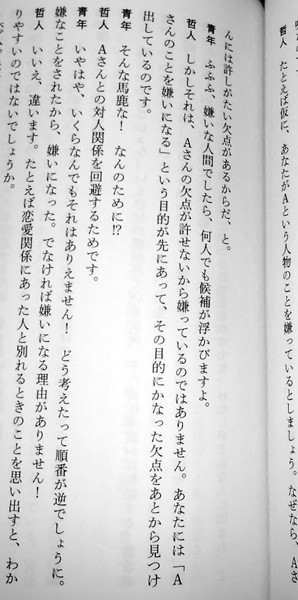 哲人　たとえば仮に、あなたがAという人物のことを嫌っているとしましょう。なぜなら、Aさ
んには許しがたい欠点があるからだ、と。
青年　ふふふ、嫌いな人間でしたら、何人でも候補が浮かびますよ。
哲人　しかしそれは、Aさんの欠点が許せないから嫌っているのではありません。あなたには「A
さんのことを嫌いになる」という目的が先にあって、その目的にかなった欠点をあとから見つけ
出しているのです。
青年　そんな馬鹿な！　なんのために!?
哲人　Aさんとの対人関係を回避するためです。
青年　いやはや、いくらなんでもそれはありえません！　どう考えたって順番が逆でしょうに。
嫌なことをされたから、嫌いになった。でなければ嫌いになる理由がありません！
哲人　いいえ、違います。たとえば恋愛関係にあった人と別れるときのことを思い出すと、わか
りやすいのではないでしょうか。